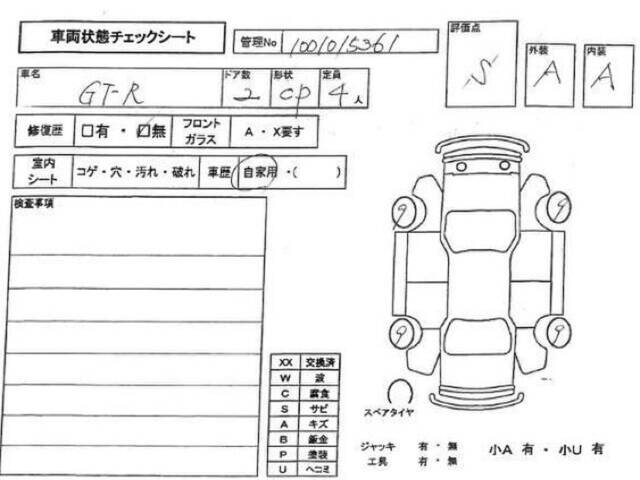 車両状態チェックシート
管理No 1001015361
評価点 S
外装 A
内装 A
車名 GT-R
ドア数 2
形状 CP
定員 4人
修復歴 □有・☑無
フロントガラス A・X要す
室内シート コゲ・穴・汚れ・破れ
車歴 自家用・( )
検査事項
9 9
9 9
スペアタイヤ
XX 交換済
W 波
C 腐食
S サビ
A キズ
B 鈑金
P 塗装
U ヘコミ
ジャッキ 有・無
工具 有・無
小A 有・小U 有